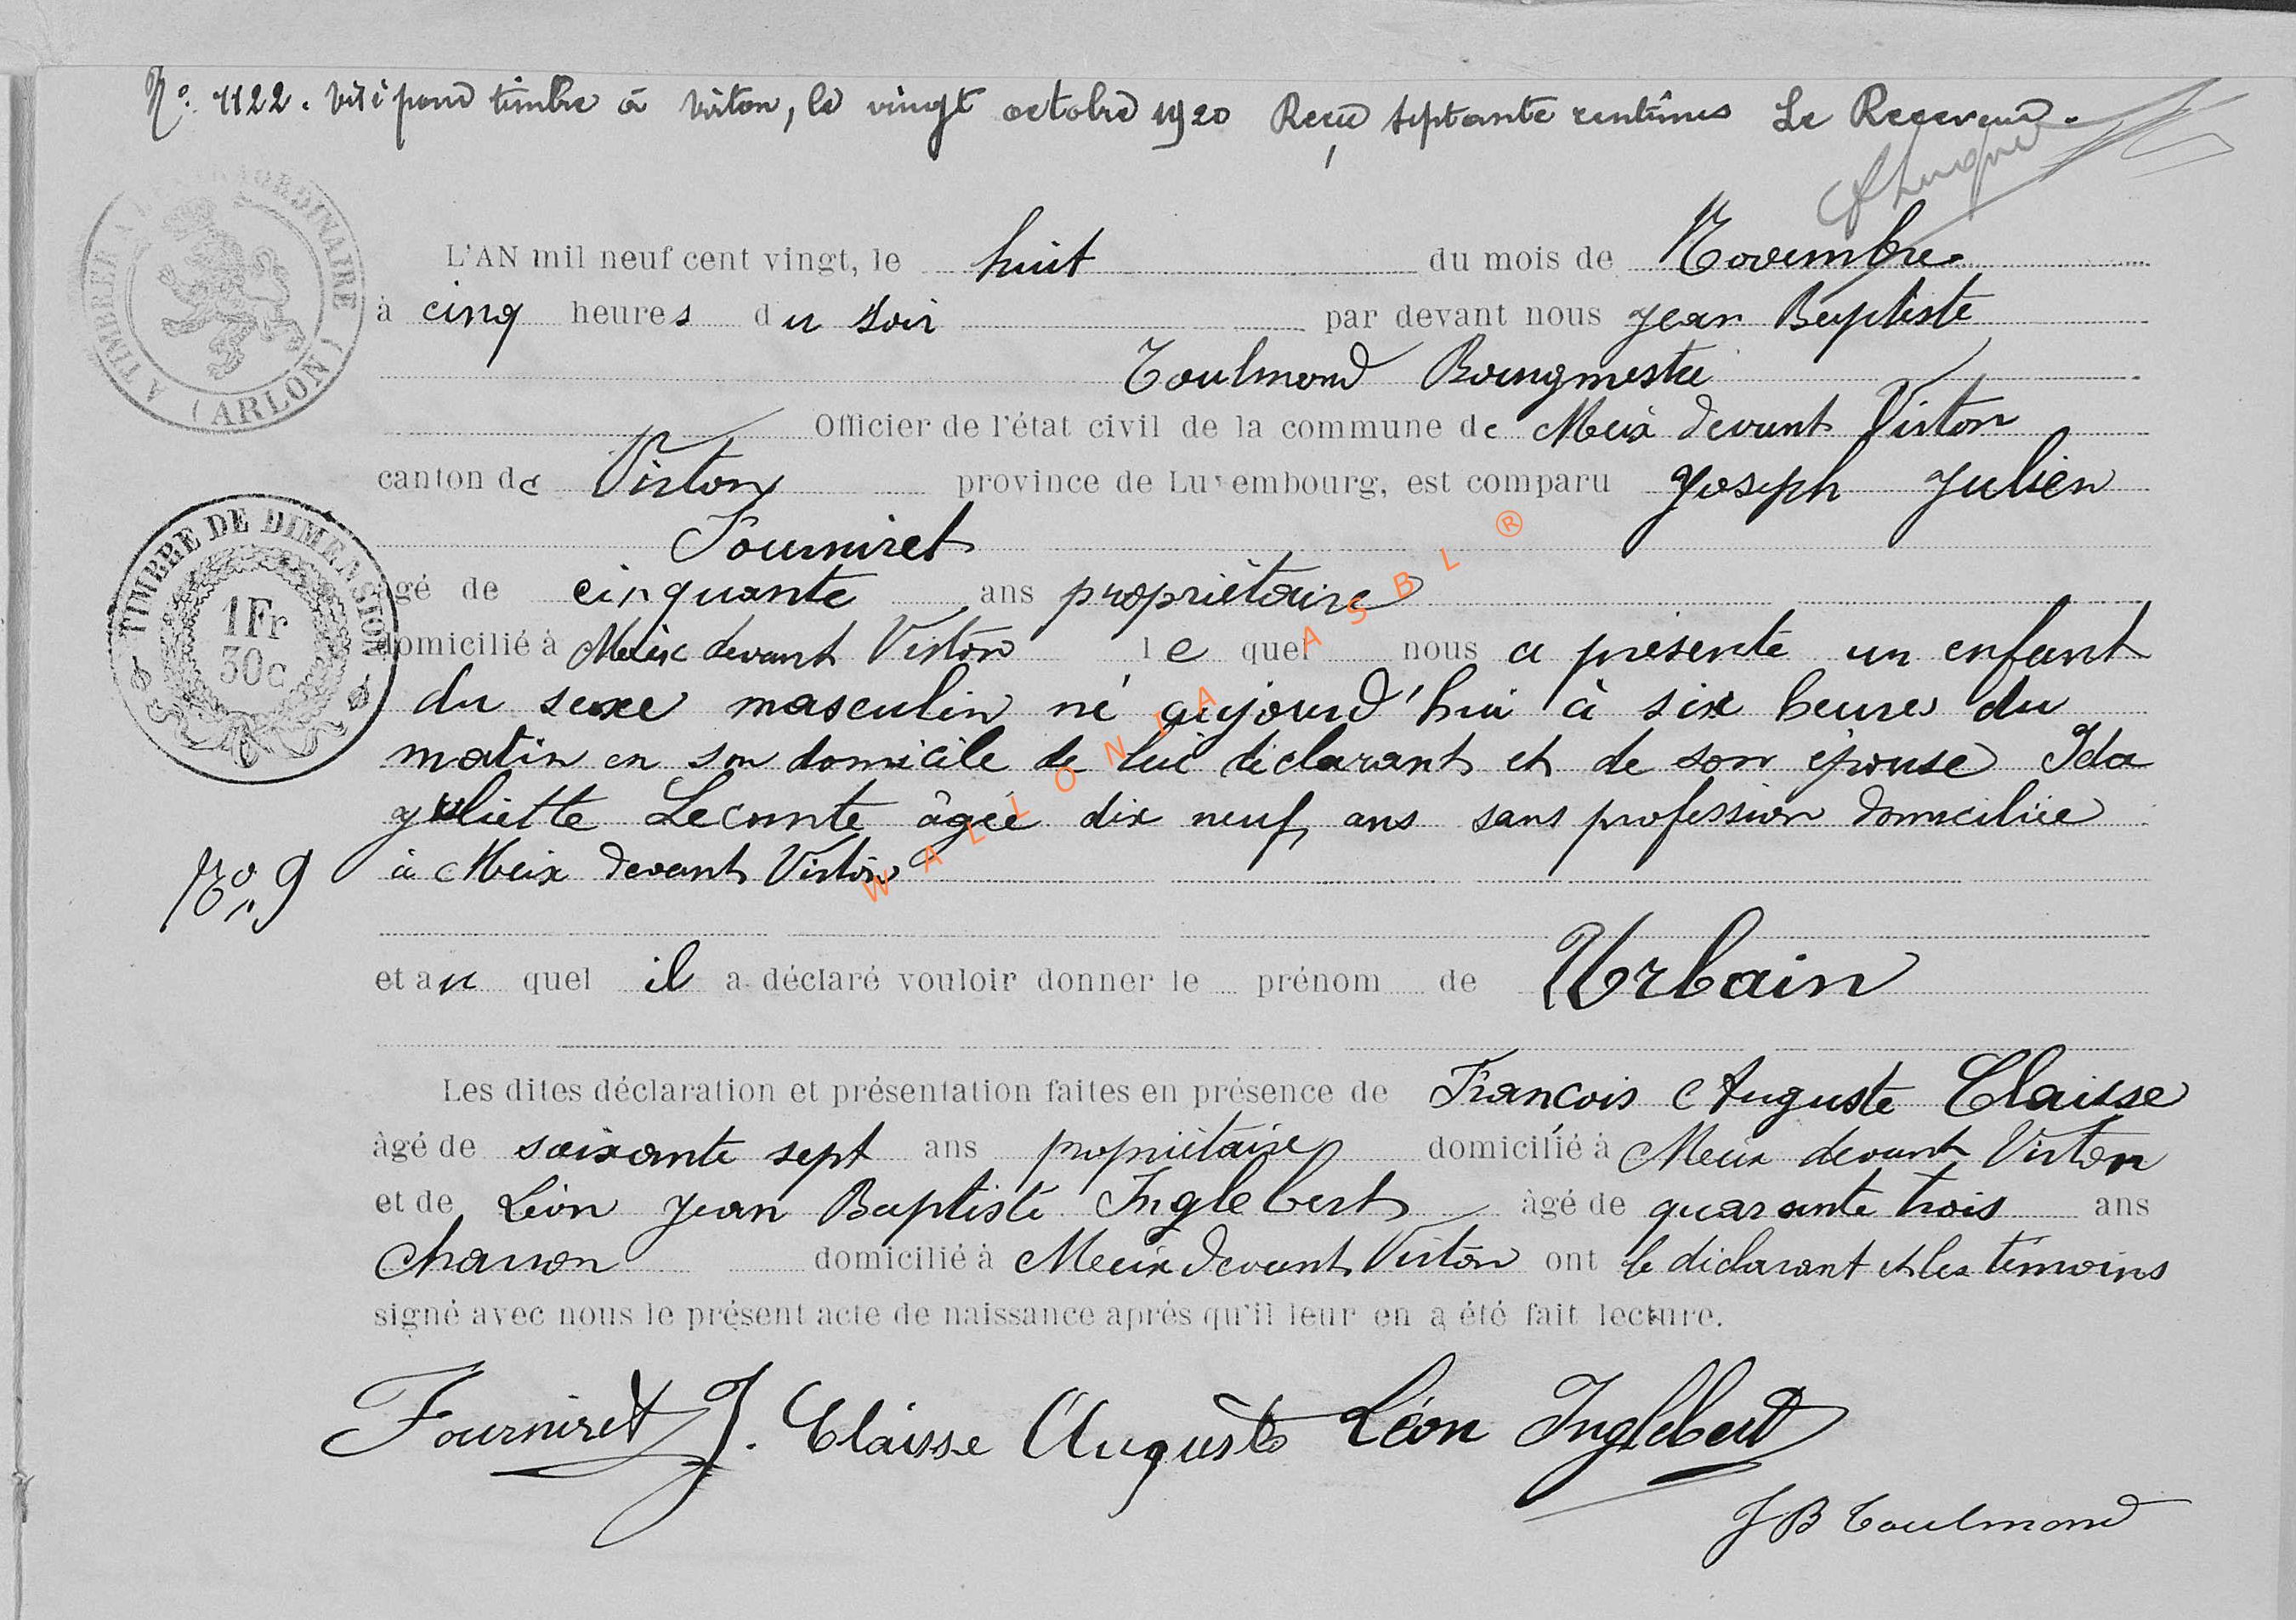 No. 1122. Visé pour timbre à Virton, le vingt octobre 1920 Reçu septante centimes Le Receveur.
A TIMBRER A L'EXTRAORDINAIRE (ARLON)
L'AN mil neuf cent vingt, le huit du mois de Novembre
à cinq heures du soir par devant nous Jean Baptiste
Toulmond Bourgmestre
Officier de l'état civil de la commune de Meix devant Virton
canton de Virton province de Luxembourg, est comparu Joseph Julien
Fourniret
TIMBRE DE DIMENSION
1 Fr
30c
âgé de cinquante ans propriétaire
domicilié à Meix devant Virton lequel nous a présenté un enfant
du sexe masculin né aujourd'hui à six heures du
matin en son domicile de lui déclarant et de son épouse Ida
Juliette Lecomte âgée dix neuf ans sans profession domiciliée
No 9 à Meix devant Virton
WALLONIA ASBL ®
et au quel il a déclaré vouloir donner le prénom de Urbain
Les dites déclaration et présentation faites en présence de François Auguste Claisse
âgé de soixante sept ans propriétaire domicilié à Meix devant Virton
et de Léon Jean Baptiste Inglebert âgé de quarante trois ans
Charron domicilié à Meix devant Virton ont le déclarant et les témoins
signé avec nous le présent acte de naissance après qu'il leur en a été fait lecture.
Fourniret J. Claisse Auguste Léon Inglebert
JB Toulmond